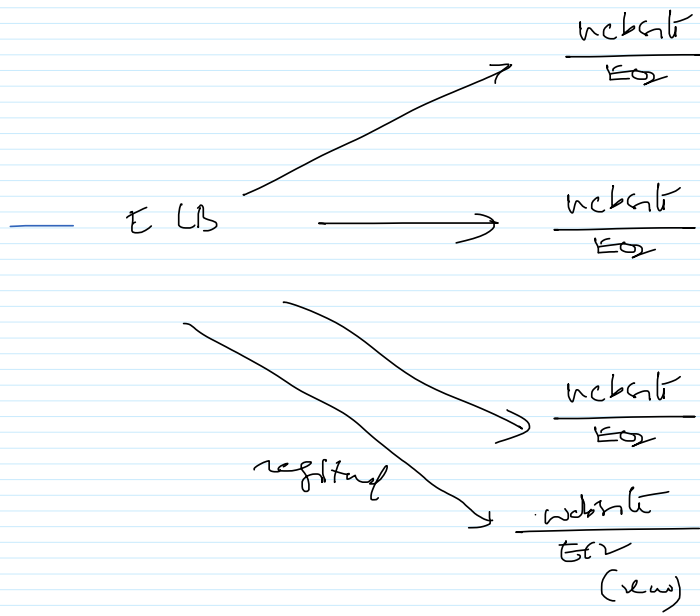 website
EC2
ELB
website
EC2
website
EC2
registered
website
EC2
(new)